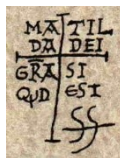 MATIL
DADEI
GRA SI
QVD EST
SS